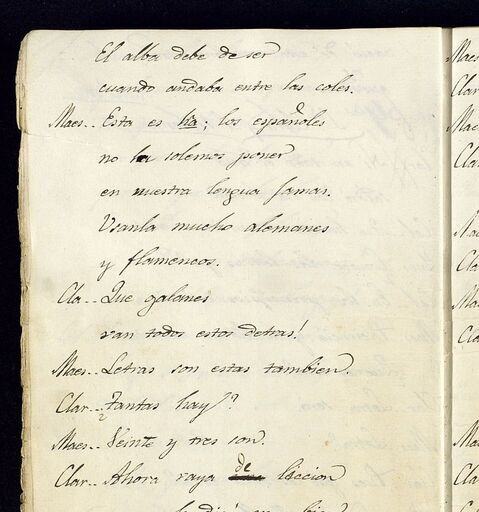 El alba debe de ser
cuando andaba entre las coles.
Maes.. Esta es ka; los españoles
no la solemos poner
en nuestra lengua jamas.
Usanla mucho alemanes
y flamencos.
Cla.. Que galanes
van todos estos detras!
Maes.. Letras son estas tambien.
Clar.. ¿Tantas hay?
Maes.. Veinte y tres son.
Clar.. Ahora vaya de liccion
Maes
Clar
Mae
Cla
Ma
Cla
Ma
Cla
Ma
Cla